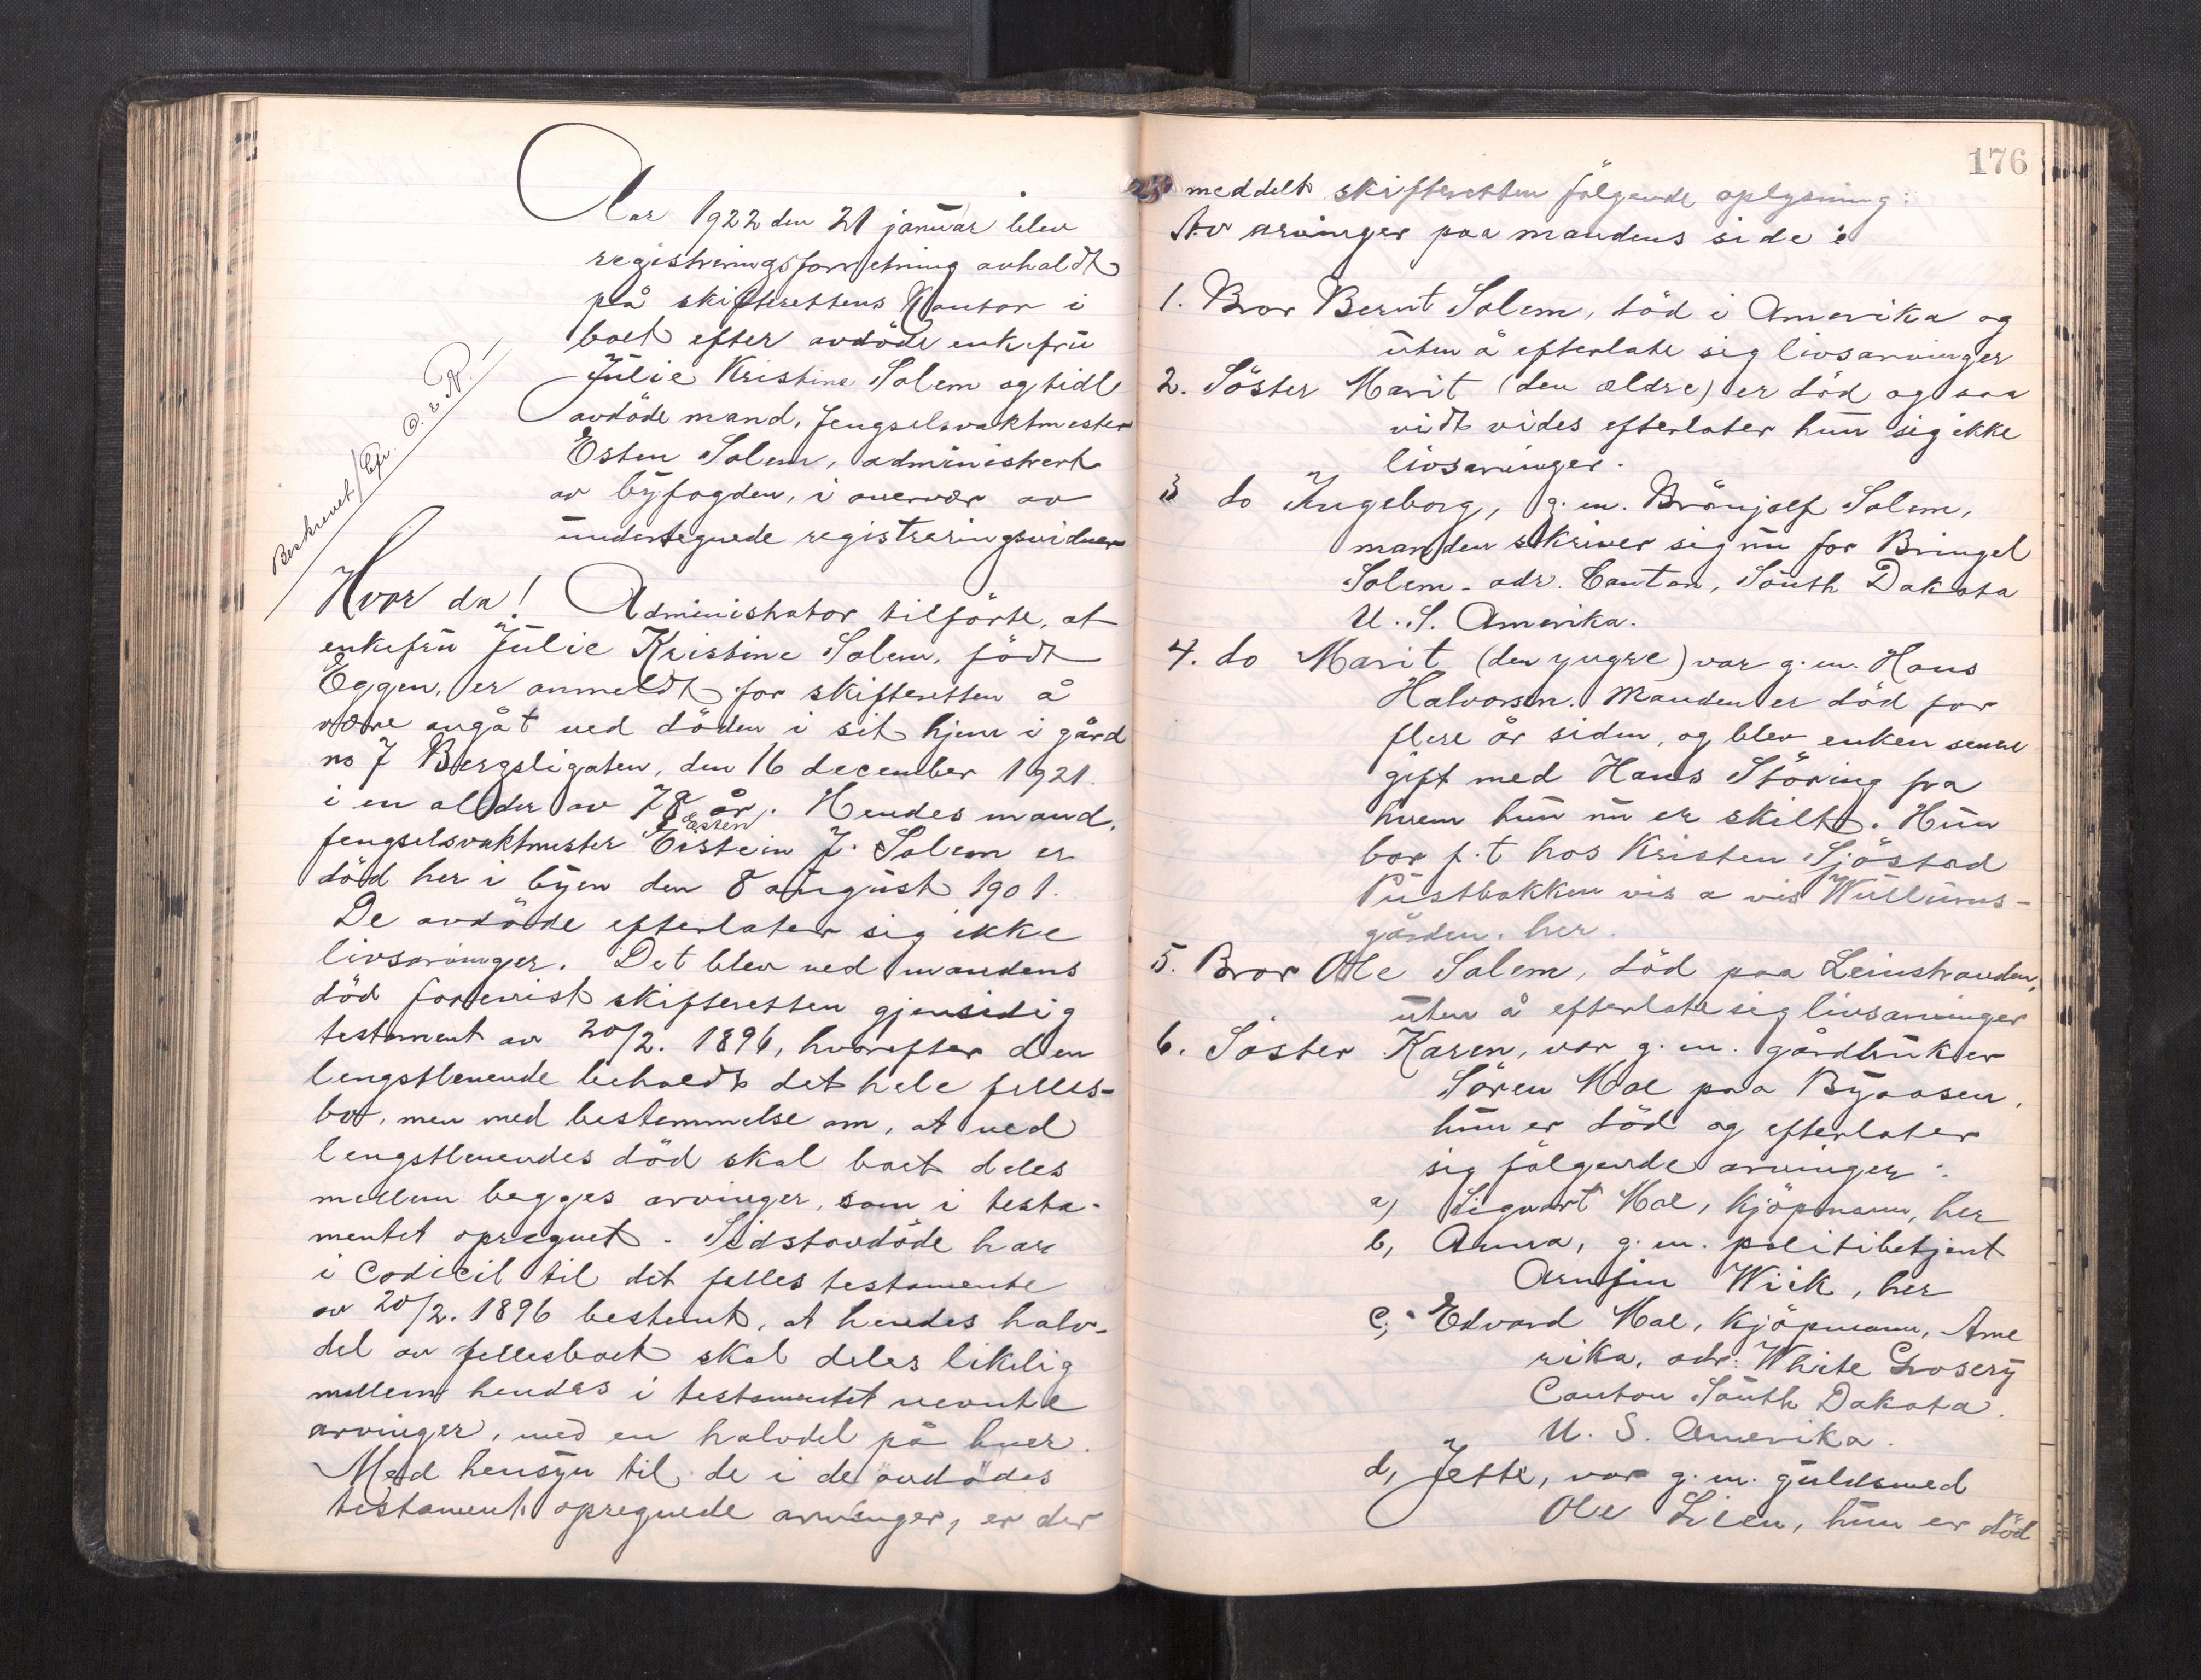 Aar 1922 den 21 januar blev
registreringsforretning avholdt
på skifterettens Kontor i
boet efter avdöde enkefru
Julie Kristine Solem og tidl
avdöde mand, fengselsvaktmester
Østen Solem, administrert
av byfogden, i overvær av
undertegnede registreringsvidner
Beskrevet
Hvor da! Administrator tilförte, at
enkefru Julie Kristine Solem, födt
Eggen, er anmeldt for skifteretten å
være avgåt ved döden i sit hjem i gård
no 7 Bergsligaten, den 16 december 1921.
i en alder av 78 år. Hendes mand,
Østen
fengselsvaktmester Eistein J. Solem er
död her i byen den 8 august 1901.
De avdöde efterlater sig ikke
livsarvinger. Det blev ved mandens
död forevist skifteretten gjensidig
testament av 20/2. 1896, hvorefter den
lengstlevende beholdt det hele felles-
bo, men med bestemmelse om, at ved
lengstlevendes död skal boet deles
mellem begges arvinger, som i testa-
mentet opregnet. Sidstavdöde har
i Codicil til det felles testamente
av 20/2. 1896 bestemt, at hendes halv-
del av fellesboet skal deles likelig
mellem hendes i testamentet nevnte
arvinger, med en halvdel på hver.
Med hensyn til de i de avdödes
testament opregnede arvinger, er der
176
meddelt skifteretten fölgende oplysning:
Av arvinger paa mandens side:
1. Bror Bernt Solem, död i Amerika og
uten å efterlate sig livsarvinger
2. Söster Marit (den ældre) er död og saa
vidt vides efterlater hun sig ikke
livsarvinger.
3 do Ingeborg, g. m. Brönjolf Solem,
manden skriver sig nu for Bringel
Solem - adr. Canton, South Dakota
U. S. Amerika.
4. do Marit (den yngre) var g. m. Hans
Halvorsen. Manden er död for
flere år siden, og blev enken senere
gift med Hans Störing fra
hvem hun nu er skilt. Hun
bor p.t hos Kristen Sjöstad
Bustbakken vis a vis Wullums-
gården. her.
5. Bror Ole Solem, död paa Leinstranden,
uten å efterlate sig livsarvinger
6. Söster Karen, var g. m. gårdbruker
Sören Hoe paa Byaasen,
hun er död og efterlater
sig fölgende arvinger:
a) Sigvart Hoe, kjöpmann, her
b, Anna, g. m. politibetjent
Arnfin Wiik, her
c, Edvard Hoe, kjöpmann, Ame
rika, adr: White Grosery
Canton South Dakota.
U. S. Amerika.
d, Jette, var g. m. guldsmed
Ole Lien, hun er död